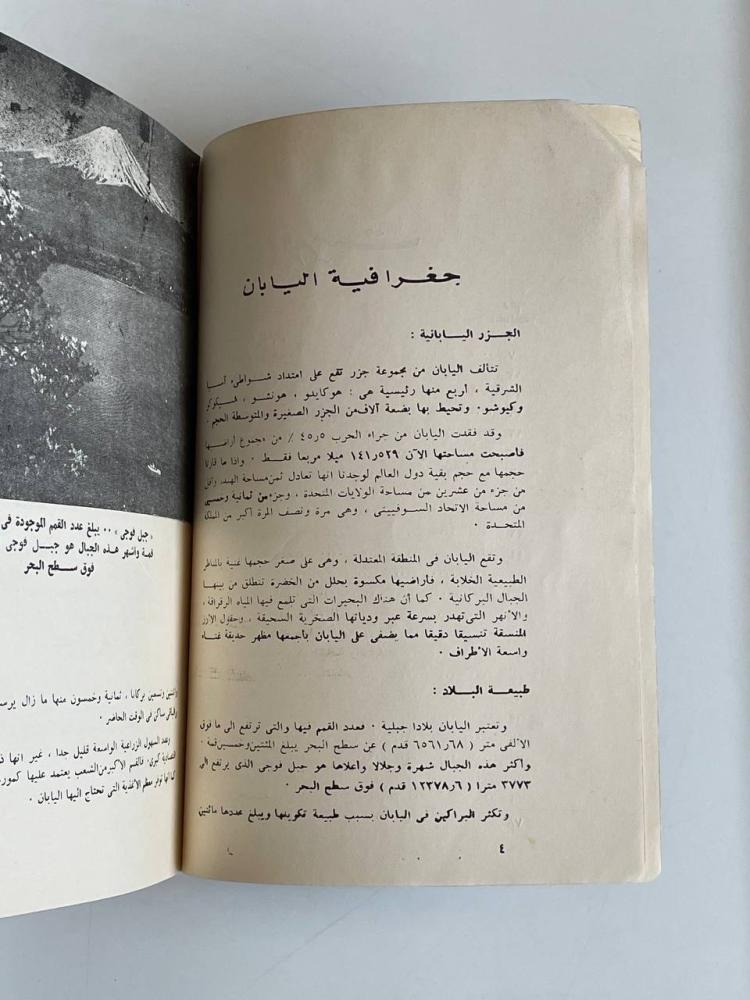 جغرافية اليابان
الجزر اليابانية :
تتألف اليابان من مجموعة جزر تقع على امتداد شواطىء آسيا
الشرقية ، أربع منها رئيسية هى : هوكايدو ، هونشو ، شيكوكو
وكيوشو . وتحيط بها بضعة آلاف من الجزر الصغيرة والمتوسطة الحجم .
وقد فقدت اليابان من جراء الحرب ٤٥ر٥ ٪ من مجموع أراضيها
فاصبحت مساحتها الآن ١٤١ر٥٢٩ ميلا مربعا فقط . واذا ما قارنا
حجمها مع حجم بقية دول العالم لوجدنا انها تعادل ثمن مساحة الهند وأقل
من جزء من عشرين من مساحة الولايات المتحدة ، وجزء من ثمانية وخمسين
من مساحة الاتحاد السوفييتى ، وهى مرة ونصف المرة أكبر من المملكة
المتحدة .
وتقع اليابان فى المنطقة المعتدلة ، وهى على صغر حجمها غنية بالمناظر
الطبيعية الخلابة ، فأراضيها مكسوة بحلل من الخضرة تنطلق من بينها
الجبال البركانية . كما أن هناك البحيرات التى تلمع فيها المياه الرقراقة ،
والأنهر التى تهدر بسرعة عبر ودياتها الصخرية السحيقة ، وحقول الأرز
المنسقة تنسيقا دقيقا مما يضفى على اليابان بأجمعها مظهر حديقة غناء
واسعة الأطراف .
طبيعة البلاد :
وتعتبر اليابان بلادا جبلية . فعدد القمم فيها والتى ترتفع الى ما فوق
الألفى متر ( ٦٥٦١ر٦٨ قدم ) عن سطح البحر يبلغ المئتين وخمسين قمة .
وأكثر هذه الجبال شهرة وجلالا وأعلاها هو جبل فوجى الذى يرتفع الى
٣٧٧٣ مترا ( ١٢٣٧٨ر٦ قدم ) فوق سطح البحر .
وتكثر البراكين فى اليابان بسبب طبيعة تكوينها ويبلغ عددها مائتين
٤
« جبل فوجى » .. يبلغ عدد القمم الموجودة فى
قمة واشهر هذه الجبال هو جبل فوجى
فوق سطح البحر
واثنين وتسعين بركانا ، ثمانية وخمسون منها ما زال
والباقى ساكن فى الوقت الحاضر .
وعدد السهول الزراعية الواسعة قليل جدا ، غير انها
اقتصادية كبرى . فالقسم الاكبر من الشعب يعتمد عليها
كما انها توفر معظم الاغذية التى تحتاج اليها اليابان .